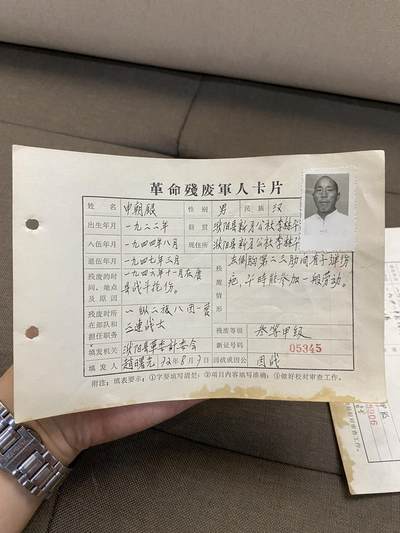 革命殘废軍人卡片
姓名 申朝银 性别 男 民族 汉
出生年月 一九二二年 籍贯 濮阳县新月公社李
入伍年月 一九四四年八月 现住所 濮阳县新月公社李
退伍年月 一九四七年七月
残废的时间、地点及原因 一九四六年十一月在
县战斗挖伤。
残废情形 左侧胸第二三肋间有子弹伤
疤,平时能参加一般劳动。
残废时所在部队和担任职务 一纵二旅八团一营
三连战士
残废等级 叁等甲级
新证号码 05345
填发机关 濮阳县革委会
填发人 赵曙光 72年8月9日 因战或因公 因战
附注:填表要求:①字要填写清楚;②项目内容填写准确;③做好校对审查工作。
校对审查工作。